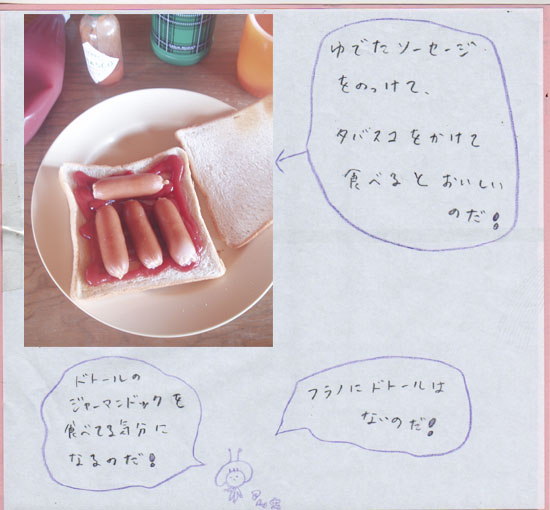 ゆでたソーセージ
をのっけて、
タバスコをかけて
食べるとおいしい
のだ!
ドトールの
ジャーマンドックを
食べてる気分に
なるのだ!
フラノにドトールは
ないのだ!